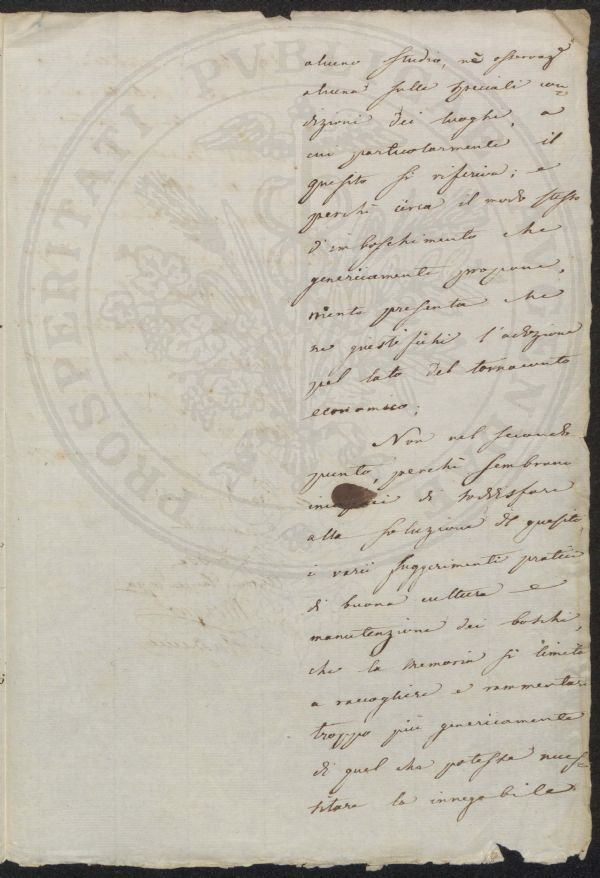 alcuno studio, nè osservaze
alcuna sulle speciali con=
dizioni dei luoghi, a
cui particolarmente il
quesito si riferiva; e
perchè circa il modo stesso
d'imboschimento che
genericamente propone,
niente presenta che
ne giustifichi l'adozione
pel lato del tornaconto
economico;
Non nel secondo
punto, perchè sembrano
di soddisfare
alla soluzione del quesito,
i varii suggerimenti pratici
di buona cultura e
manutenzione dei boschi,
che la memoria si limita
a raccogliere e rammentare
troppo più genericamente
di quel che potesse neces=
sitare la innegabile
PROSPERITATI PVBLICAE